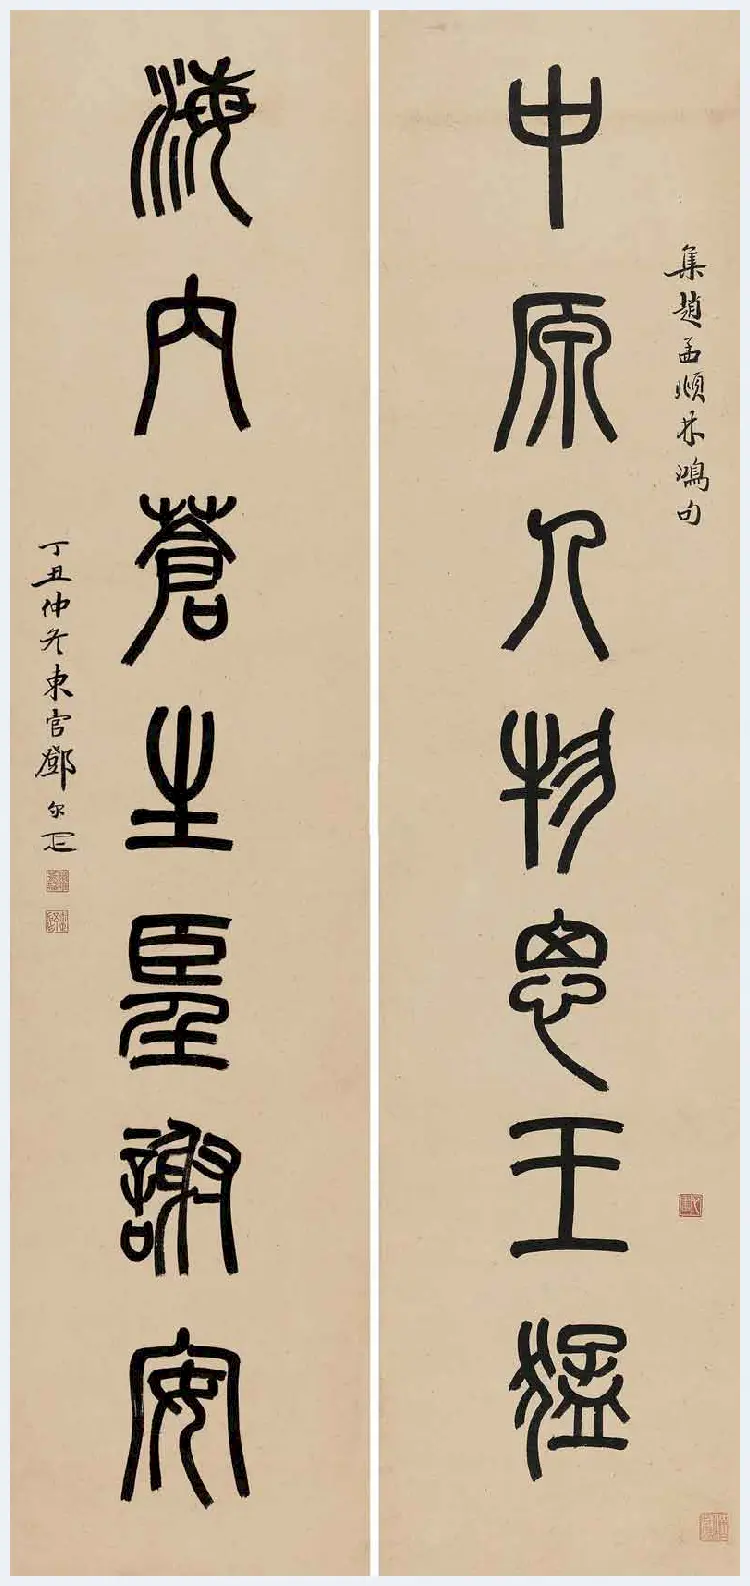 集趙孟頫林鴻句
中原人物思王猛
海内蒼生望謝安
丁丑仲冬東官鄧尔疋